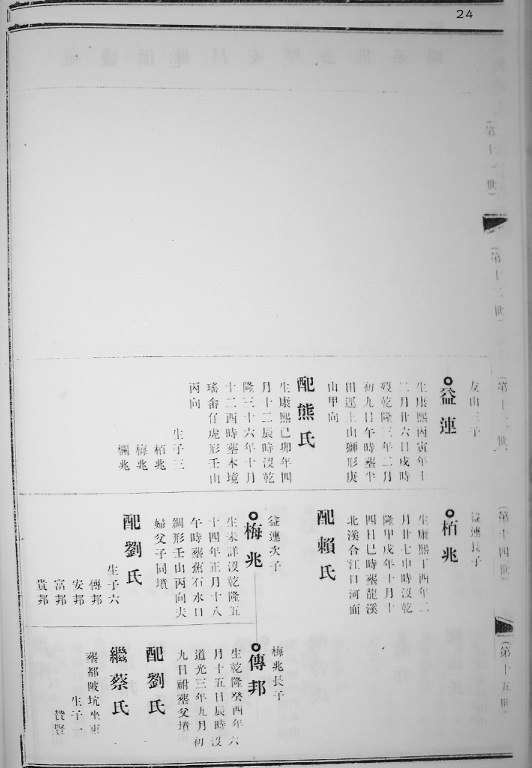 24
（第十一世）
（第十二世）
（第十三世）
友山三子
益連
生康熙丙寅年十
二月廿六日戌時
歿乾隆三年二月
初九日午時葬半
田逕上山獅形庚
山甲向
配熊氏
生康熙己卯年四
月十二辰時沒乾
隆三十六年十月
十二酉時葬本境
瑤畬仔虎形壬山
丙向
生子三
栢兆
梅兆
欄兆
（第十四世）
益連長子
栢兆
生康熙丁酉年二
月廿七申時沒乾
隆甲戌年十月十
四日巳時葬龍溪
北溪合江口河面
配賴氏
益連次子
梅兆
生未詳沒乾隆五
十四年正月十八
午時葬蕉石水口
獅形壬山丙向夫
婦父子同墳
配劉氏
生子六
傅邦
安邦
富邦
貴邦
（第十五世）
梅兆長子
傳邦
生乾隆癸酉年六
月十五日辰時沒
道光三年九月初
九日祔葬父墳
配劉氏
繼蔡氏
葬都陂坑坐東
生子一
贊賢